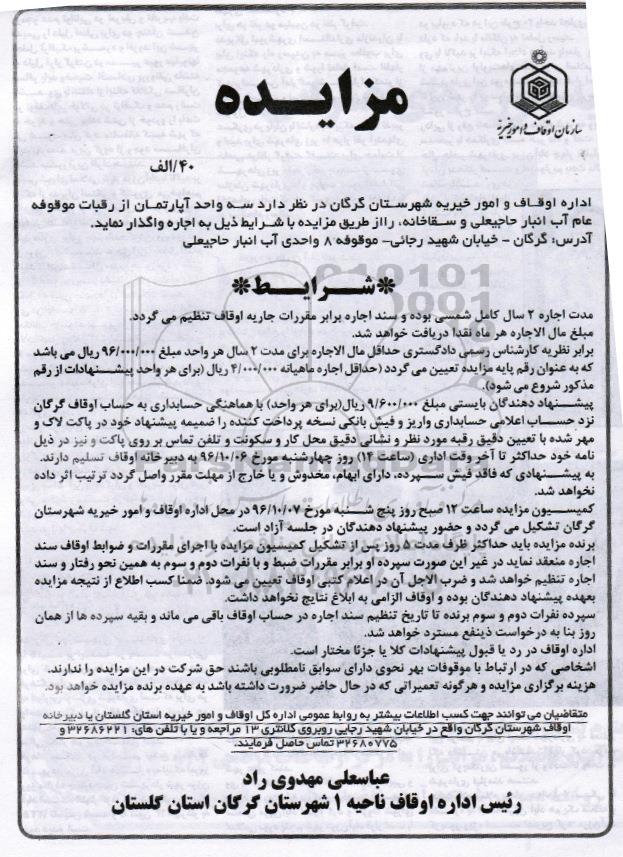 سازمان اوقاف و امور خیریه
مزایده
۴۰/الف
اداره اوقاف و امور خیریه شهرستان گرگان در نظر دارد سه واحد آپارتمان از رقبات موقوفه
عام آب انبار حاجیعلی و سقاخانه، رااز طریق مزایده با شرایط ذیل به اجاره واگذار نماید.
آدرس: گرگان - خیابان شهید رجائی- موقوفه ۸ واحدی آب انبار حاجیعلی
*شرایط*
مدت اجاره ۲ سال کامل شمسی بوده و سند اجاره برابر مقررات جاریه اوقاف تنظیم می گردد.
مبلغ مال الاجاره هر ماه نقدا دریافت خواهد شد.
برابر نظریه کارشناس رسمی دادگستری حداقل مال الاجاره برای مدت ۲ سال هر واحد مبلغ ۹۶/۰۰۰/۰۰۰ ریال می باشد
که به عنوان رقم پایه مزایده تعیین می گردد (حداقل اجاره ماهیانه ۴/۰۰۰/۰۰۰ ریال (برای هر واحد پیشنهادات از رقم
مذکور شروع می شود).
پیشنهاد دهندگان بایستی مبلغ ۹/۶۰۰/۰۰۰ ریال(برای هر واحد) با هماهنگی حسابداری به حساب اوقاف گرگان
نزد حساب اعلامی حسابداری واریز و فیش بانکی نسخه پرداخت کننده را ضمیمه پیشنهاد خود در پاکت لاک و
مهر شده با تعیین دقیق رقبه مورد نظر و نشانی دقیق محل کار و سکونت و تلفن تماس بر روی پاکت و نیز در ذیل
نامه خود حداکثر تا آخر وقت اداری (ساعت ۱۴) روز چهارشنبه مورخ ۹۶/۱۰/۰۶ به دبیرخانه اوقاف تسلیم دارند.
به پیشنهادی که فاقد فیش سپرده، دارای ابهام، مخدوش و یا خارج از مهلت مقرر واصل گردد ترتیب اثر داده
نخواهد شد.
کمیسیون مزایده ساعت ۱۲ صبح روز پنج شنبه مورخ ۹۶/۱۰/۰۷ در محل اداره اوقاف و امور خیریه شهرستان
گرگان تشکیل می گردد و حضور پیشنهاد دهندگان در جلسه آزاد است.
برنده مزایده باید حداکثر ظرف مدت ۵ روز پس از تشکیل کمیسیون مزایده با اجرای مقررات و ضوابط اوقاف سند
اجاره منعقد نماید در غیر این صورت سپرده او برابر مقررات ضبط و با نفرات دوم و سوم به همین نحو رفتار و سند
اجاره تنظیم خواهد شد و ضرب الاجل آن در اعلام کتبی اوقاف تعیین می شود. ضمنا کسب اطلاع از نتیجه مزایده
بعهده پیشنهاد دهندگان بوده و اوقاف الزامی به ابلاغ نتایج نخواهد داشت.
سپرده نفرات دوم و سوم برنده تا تاریخ تنظیم سند اجاره در حساب اوقاف باقی می ماند و بقیه سپرده ها از همان
روز بنا به درخواست ذینفع مسترد خواهد شد.
اداره اوقاف در رد یا قبول پیشنهادات کلا یا جزئا مختار است.
اشخاصی که در ارتباط با موقوفات بهر نحوی دارای سوابق نامطلوبی باشند حق شرکت در این مزایده را ندارند.
هزینه برگزاری مزایده و هرگونه تعمیراتی که در حال حاضر ضرورت داشته باشد به عهده برنده مزایده خواهد بود.
متقاضیان می توانند جهت کسب اطلاعات بیشتر به روابط عمومی اداره کل اوقاف و امور خیریه استان گلستان یا دبیرخانه
اوقاف شهرستان گرگان واقع در خیابان شهید رجایی روبروی کلانتری ۱۳ مراجعه و یا با تلفن های: ۳۲۶۸۶۲۲۱ و
۳۲۶۸۰۷۷۵ تماس حاصل فرمایند.
عباسعلی مهدوی راد
رئیس اداره اوقاف ناحیه ۱ شهرستان گرگان استان گلستان